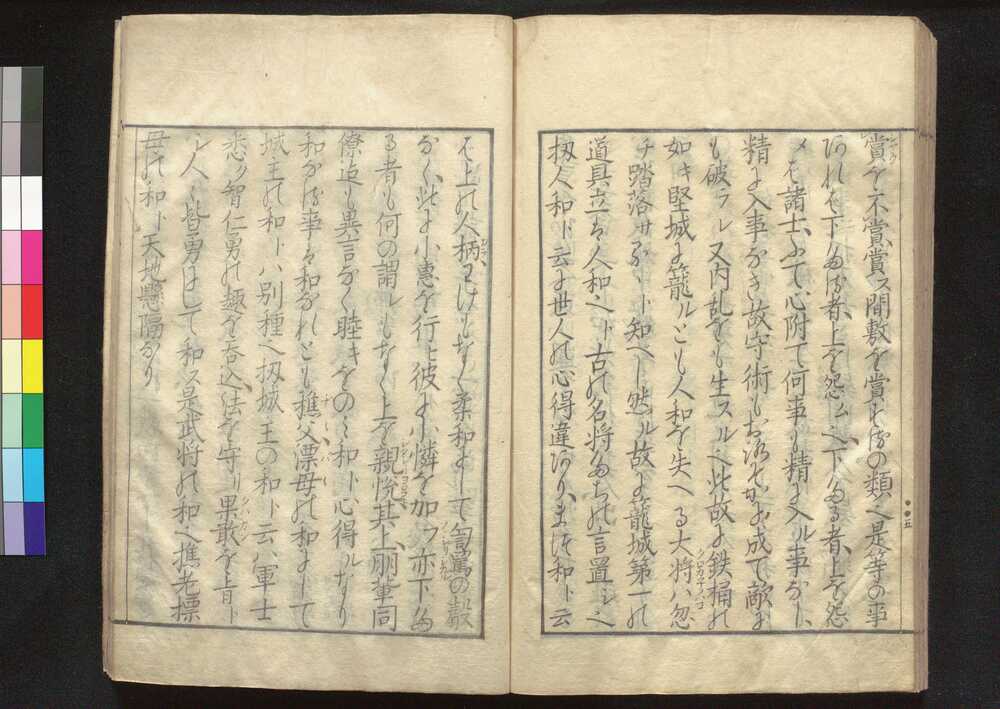 賞を不賞、賞ス間敷を賞するの類ヘ是等の事
あれバ下たる者、上を怨ム ヘ下たる者、上を怨
メバ諸士、ふて心附て何事も精よ入ル事なし、
精よ入事なき故守術もおろそかよ成て敵に
も破ラレ又内乱をも生スルヘ此故よ鉄桶の
如キ堅城よ籠ルとも人和を失ヘる大将ハ忽
チ踏落サるヽト知ヘし然ル故よ籠城第一の
道具立ハ人和ヘト古の名将たちの言置レヘ
扨人和ト云よ世人の心得違あり、まづ和ト云
バ上の人柄わけもなく柔和よして罵の聲
なく、此よ小恵を行ヒ彼よ小憐を加フ亦下た
る者も何の謂レもなく上を親ミ悦、其上朋輩同
僚迄も異言なく睦きをのミ和ト心得ルなり
和なる事ハ和なれとも樵父漂母の和よして
城主の和トハ別種ヘ扨城主の和ト云ハ軍士
悉ク智仁勇の趣を呑込、法を守り果敢を上ト
シ人々皆勇はして和ス是武将の和ヘ樵老標
母の和ト天地懸隔なり